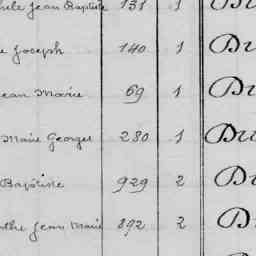 Jean Baptiste 131 1
Joseph 140 1 Du
Jean Marie 69 1 Du
Marie Georges 280 1 Du
Baptiste 929 2 Du
Jean Marie 892 2 D